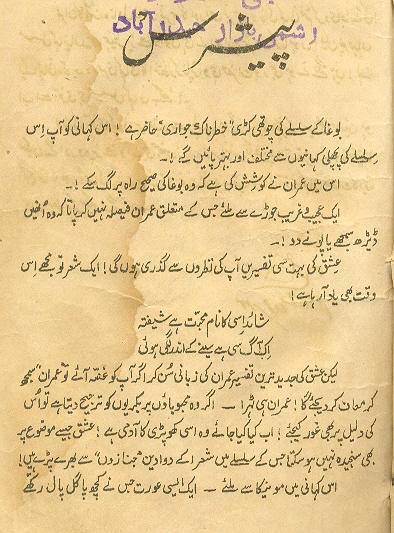 پیشرس
ریشمی بازار حیدرآباد
بوغا کے سلسلے کی چوتھی کڑی "خطرناک جواری" حاضر ہے! اس کہانی کو آپ اس
سلسلے کی پچھلی کہانیوں سے مختلف اور بہتر پائیں گے!۔
اس میں عمران نے کوشش کی ہے کہ وہ بوغا کی صحیح راہ پر لگ سکے!۔
ایک عجیب و غریب جوڑے سے ملئے جس کے متعلق عمران فیصلہ نہیں کر پاتا کہ وہ انھیں
ڈیڑھ سمجھے یا پونے دو!۔
عشق کی بہت سی تفسیریں آپ کی نظروں سے گذری ہوں گی! ایک شعر تو مجھے اس
وقت بھی یاد آ رہا ہے!
شائد اسی کا نام محبت ہے شیفتہ
اک آگ سی ہے سینے کے اندر لگی ہوئی
لیکن عشق کی جدید ترین تفسیر عمران کی زبانی سن کر اگر آپ کو غصہ آئے تو "عمران" سمجھ
کر معاف کر دیجئے گا! عمران ہی ٹہرا۔ اگر وہ محبوباؤں پر بکریوں کو ترجیح دیتا ہے تو اُس
کی دلیل پر بھی غور کیجئے! اب کیا کیا جائے وہ اسی کھوپڑی کا آدمی ہے! عشق جیسے موضوع پر
بھی سنجیدہ نہیں ہو سکتا جس کے سلسلے میں شعرا کے دوادین "جنازوں" سے بھرے پڑے ہیں!
اس کہانی میں مونیکا سے ملئے۔ ایک ایسی عورت جس نے کچھ پاگل پال رکھے